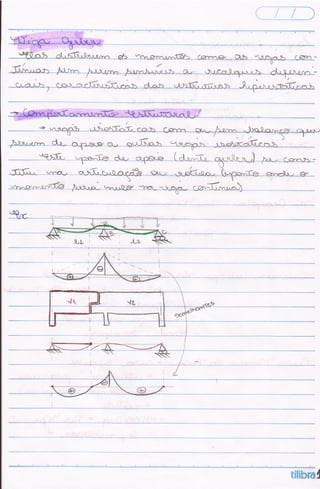 Viga Gerber
Elas distribuem os momentos como as vigas con-
tínuas sem serem sensíveis a recalques diferen-
ciais, características das estruturas hiperestáticas
→ Comportamento estrutural
• vigas isostáticas com ou sem balanço que
servem de apoio a outras vigas isostáticas.
Este ponto de apoio (dente gerber) se cons-
titui na articulação ou rótula (ponto onde o
momento seria nulo na viga contínua)
Ex:
A B C
l1 l2
⊕ ⊖ ⊕
V1 V2
semelhantes
⊕ ⊖ ⊕
tilibra